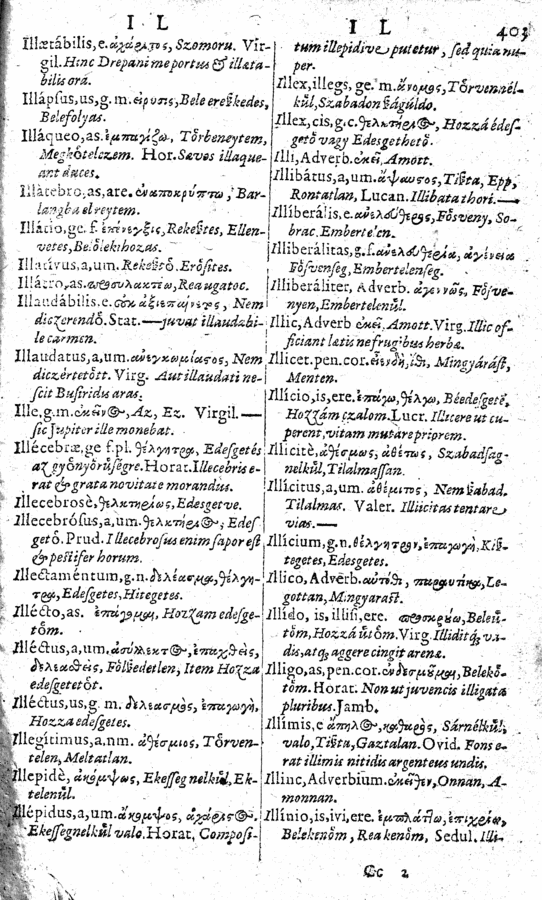 I L
I L 403
Illætábilis, e. ἀχάριτος, Szomoru. Vir-
gil. Hinc Drepani me portus & illæta-
bilis ora.
Illápsus, us, g. m. Bele ereſkedes,
Belefolyas.
Illáqueo, as. ἐμπαγίζω, Tőrbeneytem,
Megkőtelczem. Hor. Sævos illaque-
ant duces.
Illátebro, as, are. ἐναποκρύπτω, Bar-
langba el reytem.
Illátio, ge. f. Rekeſtes, Ellen-
vetes, Belőlekihozas.
Illatívus, a, um. Rekeſtő. Erőſites.
Illátro, as. Rea ugatoc.
Illaudábilis, e. Nem
diczerendő. Stat. — juvat illaudabi-
le carmen.
Illaudatus, a, um. ἀνεγκωμίαςος, Nem
diczértetőtt. Virg. Aut illaudati ne-
ſcit Buſiridis aras.
Ille, g. m. ἐκεῖν Θ, Az, Ez. Virgil. —
ſic Jupiter ille monebat.
Illécebræ, ge f. pl. θέλγητρα, Edeſgetés
az győnyőrűſégre. Horat. Illecebris e-
rat & grata novitate morandus.
Illecebrosè, θελκτηρίως, Edesgetve.
Illecebrósus, a, um. θελκτήρι Θ; Edeſ
gető. Prud. Illecebroſus enim ſapor eſt
& peſtifer horum.
Illectaméntum, g. n. δελέασμα, θέλγη-
τρα, Edeſgetes, Hitegetes.
Illécto, as. ἐπάγομαι, Hozzam edeſge-
tőm.
Illéctus, a, um. ἀσύλλεκτ Θ, ἐπαχθεὶς,
δελεαθεὶς, Főlſedetlen, Item Hozza
edeſgetetőt.
Illéctus, us, g. m. δελεασμὸς, ἐπαγωγὴ,
Hozza edesgetes.
Illegítimus, a, nm. ἀθέσμιος, Tőrven-
telen, Meltatlan.
Illepidè, ἀκόμψως, Ekeſſeg nelkűl, Ek-
telenűl.
Illépidus, a, um. ἄκομψος, ἀχάρις Θ.
Ekeſſegnelkűl valo. Horat, Compoſi-
tum illepidive putetur, ſed quia nu-
per.
Illex, illegs, ge. m. ἄνομος, Tőrvennél-
kűl, Szabadon ſágúldo.
Illex, cis, g. c. θελκτήρι Θ, Hozzá édeſ-
gető vagy Edesgethető.
Illi, Adverb. ἐκεῖ, Amott.
Illibátus, a, um. ἄψαυςος, Tiſta, Epp,
Rontatlan, Lucan. Illibata thori. —
Illiberális, e. ἀνελούθερος, Fősveny, So-
brac. Embertelen.
Illiberálitas, g. f. ἀνελουθερία, ἀγένεια
Főſvenſeg, Embertelenſeg.
Illiberáliter, Adverb. ἀγεννῶς, Főſve-
nyen, Embertelenűl.
Illic, Adverb ἐκεῖ, Amott. Virg. Illic of-
ficiant lætis ne frugibus herbæ.
Illicet. pen. cor. Mingyáráſt,
Menten.
Illício, is, ere. ἐπάγω, θέλγω, Béedeſgetē,
Hozzám czalom. Lucr. Illicere ut cu-
perent, vitam mutare priprem.
Illicitè, ἀθέσμως, ἀθέτως, Szabadſag-
nelkűl, Tilalmaſſan.
Illícitus, a, um. ἀθέμιτος, Nem ſabad.
Tilalmas. Valer. Illicitas tentare
vias. —
Illícium, g. n. θέλγητρον, ἐπαγωγὴ, Kiſ-
tegetes, Edesgetes.
Illico, Adverb. αὐτόθι, παραυτίκα, Le-
gottan, Mingyaraſt.
Illído, is, illiſi, ere. προσκρούω, Beleű-
tőm, Hozzá űtőm. Virg. Illiditq; va-
dis, atq; aggere cingit arenæ.
Illigo, as, pen. cor. ἐνδεσμοῦμαι, Belekő-
tőm. Horat. Non ut juvencis illigata
pluribus. Jamb.
Illímis, e ἄπηλ Θ, καθαρὸς, Sárnélkűl
valo, Tiſta, Gaztalan. Ovid. Fons e-
rat illimis nitidis argenteus undis.
Illinc, Adverbium. ἐκεῖθεν, Onnan, A-
monnan.
Illínio, is, ivi, ere. ἐμπλάτω, ἐπιχρίω,
Belekenőm, Rea kenőm, Sedul. Illi-
Cc 2